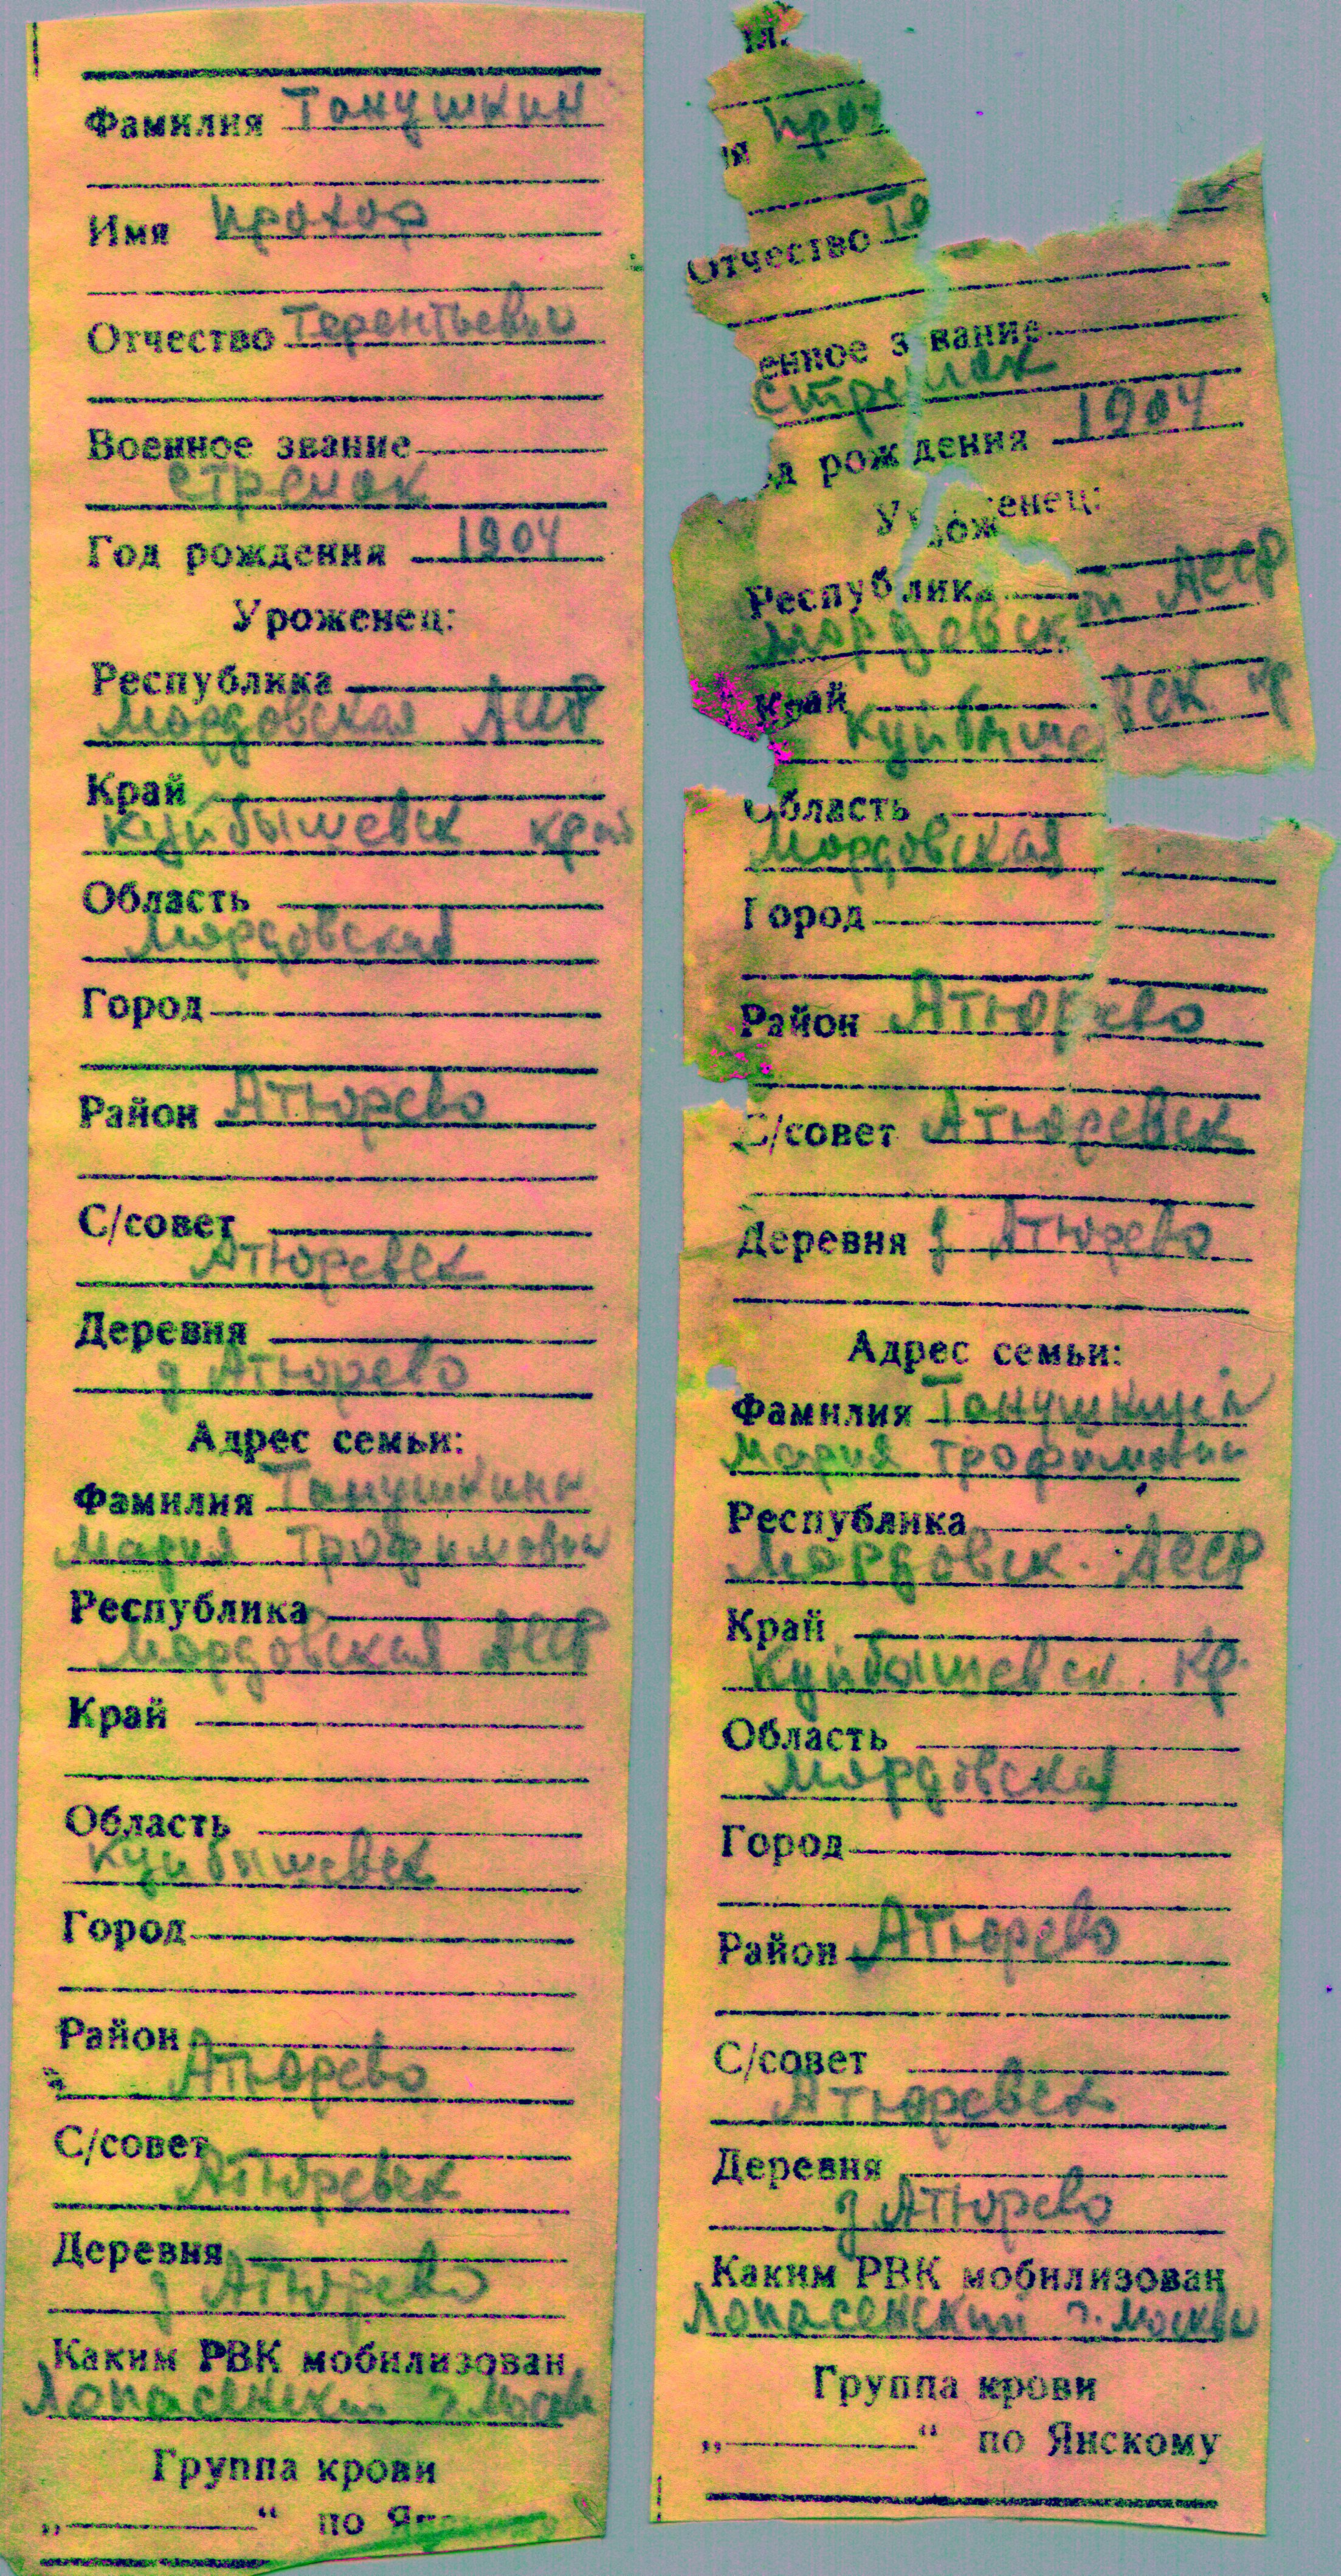 Фамилия Танушкин
Имя Прохор
Отчество Терентьевич
Военное звание
стрелок
Год рождения 1904
Уроженец:
Республика
Мордовская АССР
Край
Куйбышевск край
Область
Мордовская
Город
Район Атюрево
С/совет
Атюревск
Деревня
д Атюрево
Адрес семьи:
Фамилия Танушкина
Мария Трофимовн
Республика
Мордовская АССР
Край
Область
Куйбышевск
Город
Район
Атюрево
С/совет
Атюревск
Деревня
д Атюрево
Каким РВК мобилизован
Лопасенский г. Москвы
Группа крови
„ “ по Янс
ия Прох
Отчество Те
енное звание
стрелок
од рождения 1904
Уроженец:
Республика
Мордовской АССР
Край
Куйбышевск кр
Область
Мордовская
Город
Район Атюрево
С/совет Атюревск
Деревня д Атюрево
Адрес семьи:
Фамилия Танушкина
Мария Трофимовн
Республика
Мордовск. АССР
Край
Куйбышевск. кр.
Область
Мордовская
Город
Район Атюрево
С/совет
Атюревск
Деревня
д Атюрево
Каким РВК мобилизован
Лопасенский г. Москвы
Группа крови
„ “ по Янскому